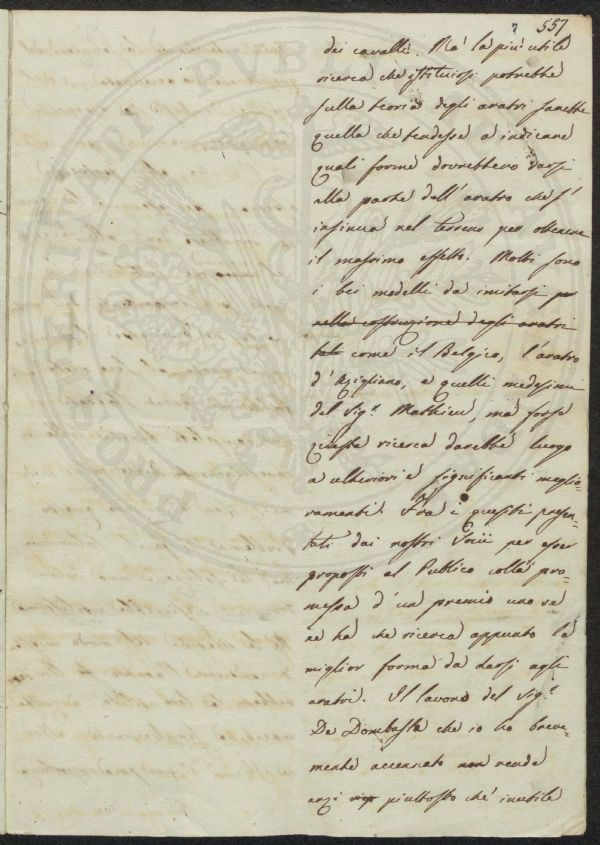 557
dei cavalli. Ma la più utile
ricerca che istituirsi potrebbe
sulla teoria degli aratri sarebbe
quella che tendesse a indicare
quali forme dovrebbero darsi
alla parte dell' aratro che s'
insinua nel terreno per ottenere
il massimo effetto. Molti sono
i bei modelli da imitarsi per
nella costruzione degli aratri
tali come il Belgico, l'aratro
d'Azigliano, e quelli medesimi
del Sig.r Mathieu, ma forse
questa ricerca darebbe luogo
a ulteriori e significanti miglio-
ramenti. Fra i quesiti presen-
tati dai nostri Socii per esser
proposti al Publico colla pro-
messa d'un premio uno se
ne ha che ricerca appunto la
miglior forma da darsi agli
aratri. Il lavoro del Sig.r
De Dombasle che io ho breve-
mente accennato non rende
anzi piuttosto che inutile